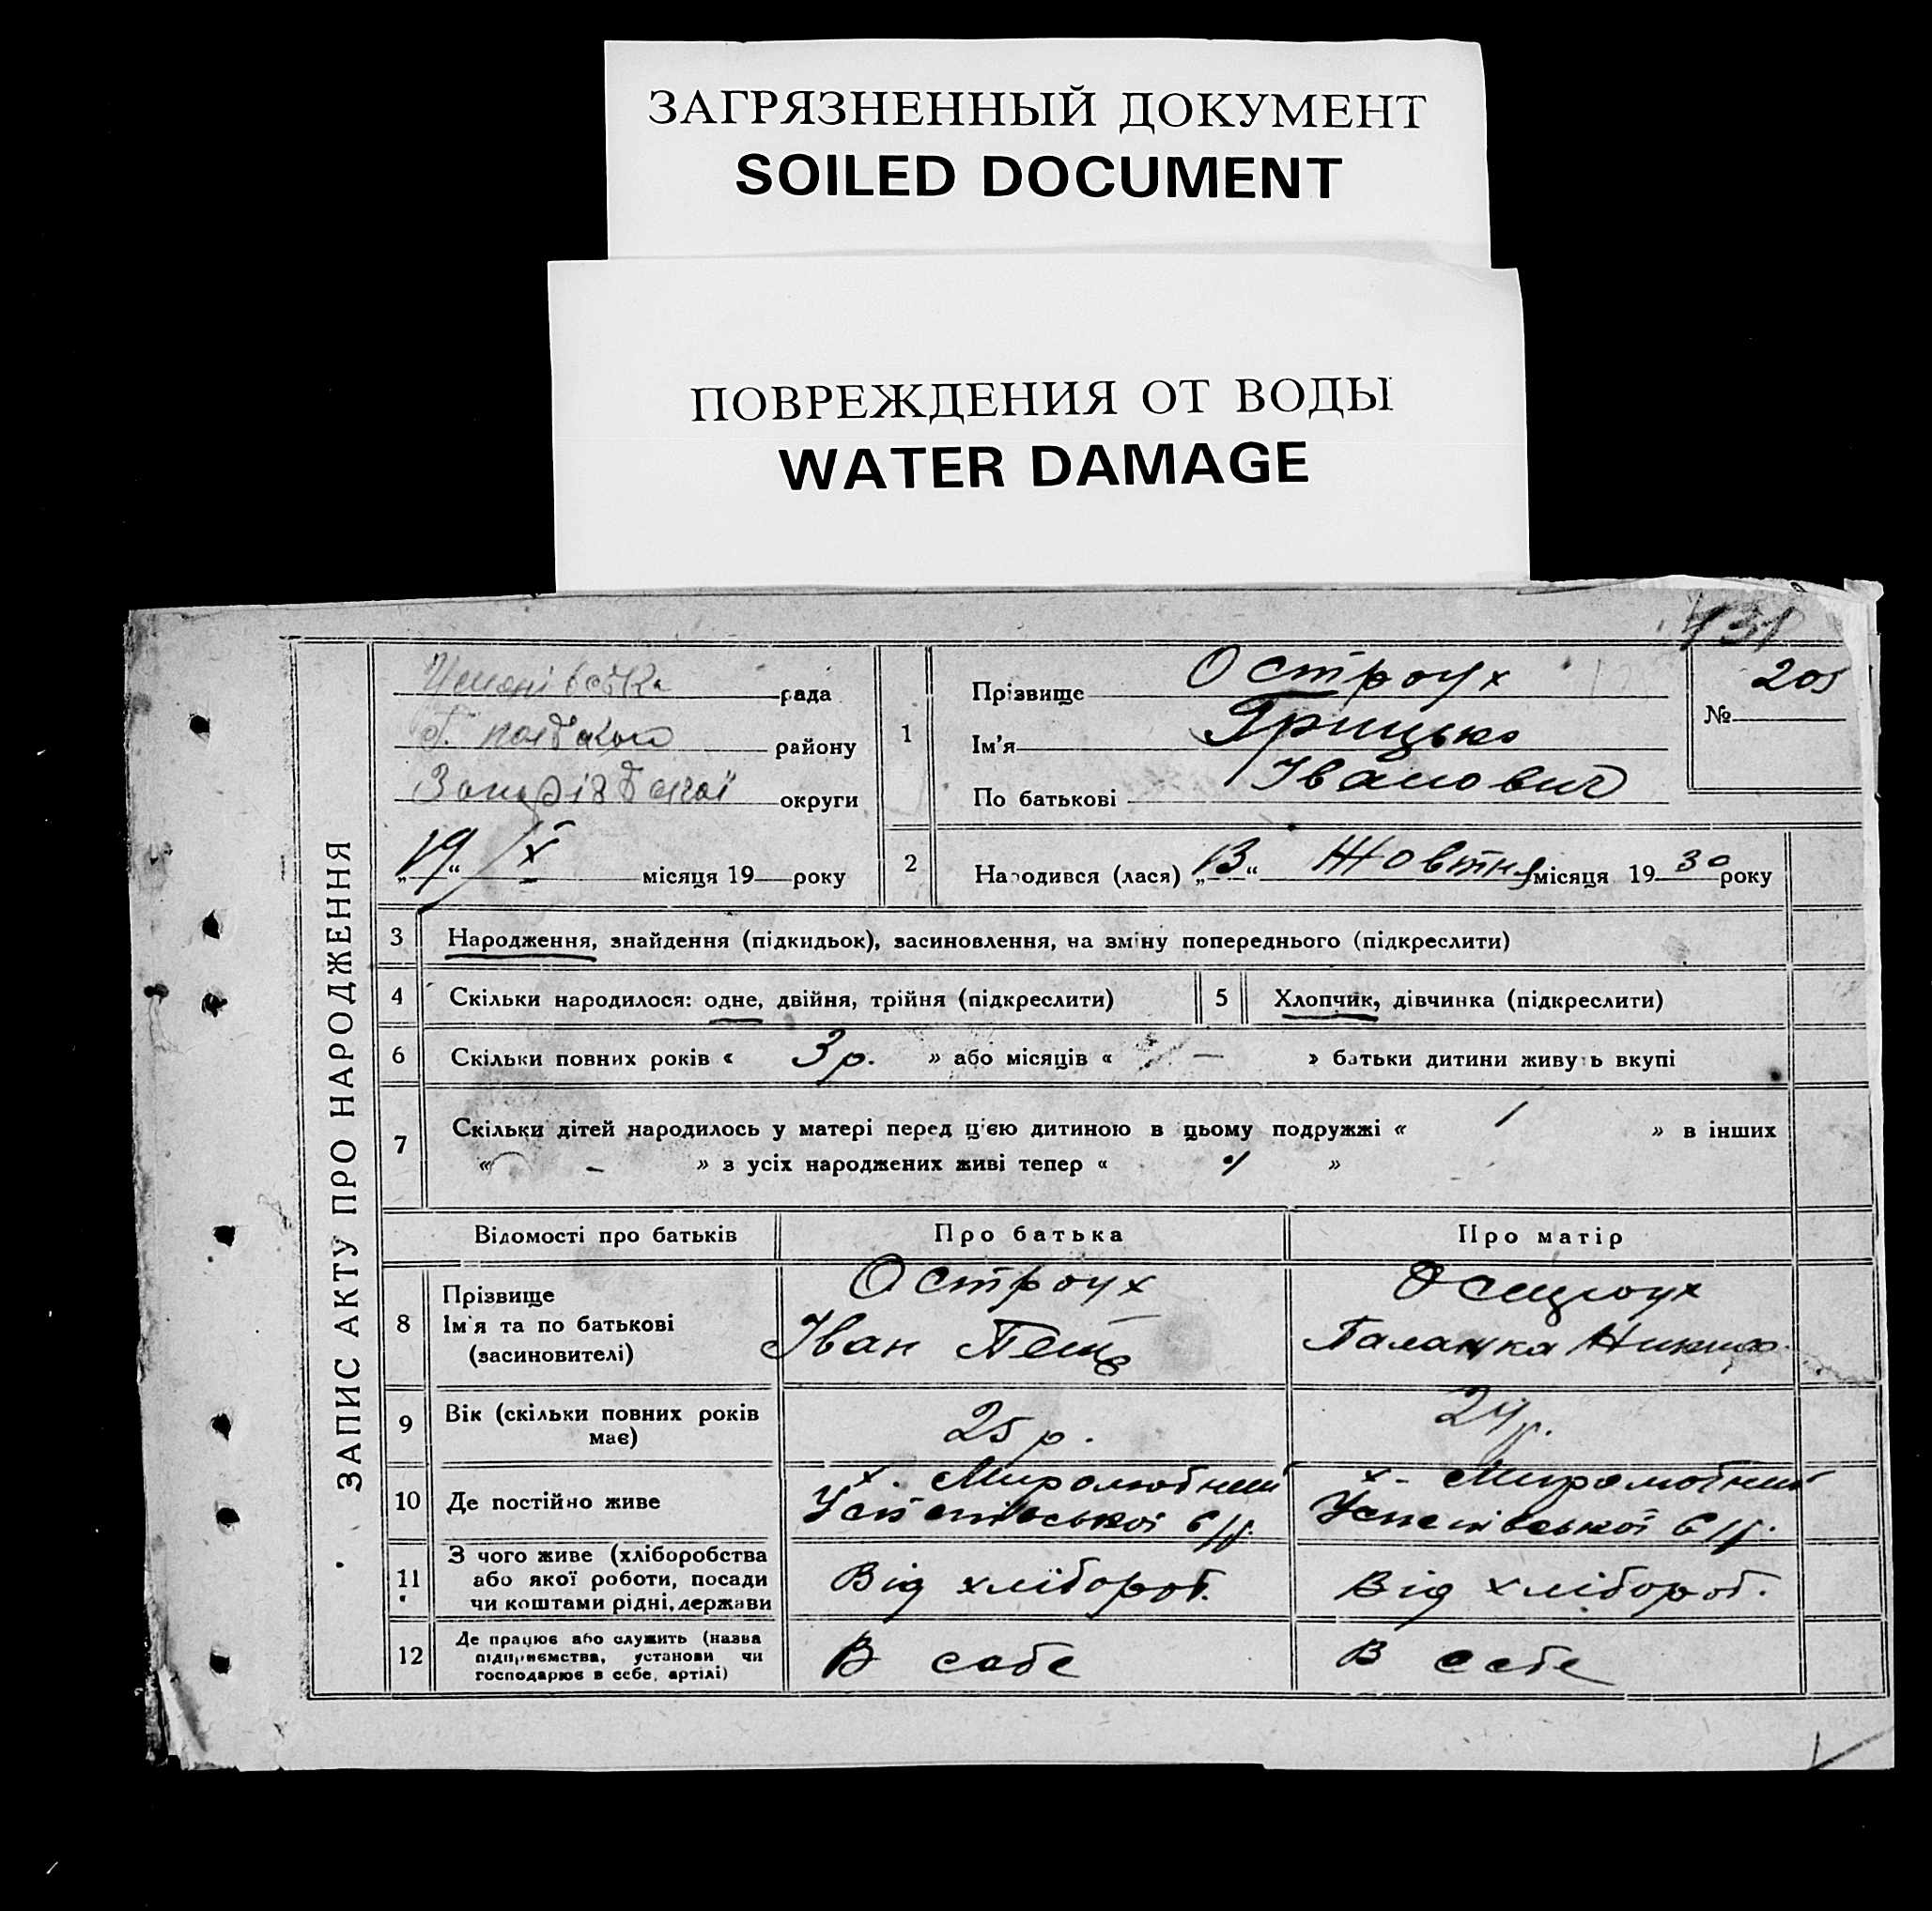 ЗАГРЯЗНЕННЫЙ ДОКУМЕНТ
SOILED DOCUMENT
ПОВРЕЖДЕНИЯ ОТ ВОДЫ
WATER DAMAGE
ЗАПИС АКТУ ПРО НАРОДЖЕННЯ
рада
району
округи
„19“ / X місяця 19 року
1
Прізвище Остроух
Ім'я Грицько
По батькові Іванович
431
№ 205
2 Народився (лася) „13“ Жовтня місяця 1930 року
3 Народження, знайдення (підкидьок), засиновлення, на зміну попереднього (підкреслити)
4 Скільки народилося: одне, двійня, трійня (підкреслити) 5 Хлопчик, дівчинка (підкреслити)
6 Скільки повних років « 3 р. » або місяців « — » батьки дитини живуть вкупі
7 Скільки дітей народилось у матері перед цією дитиною в цьому подружжі « 1 » в інших
« – » з усіх народжених живі тепер « 1 »
Відомості про батьків Про батька Про матір
8 Прізвище Остроух Остроух
Ім'я та по батькові Іван Палажка
(засиновителі)
9 Вік (скільки повних років 25 р. 24 р.
має)
10 Де постійно живе х. Миролюбний х. Миролюбний
Успенівської с/р. Успенівської с/р.
11 З чого живе (хліборобства
або якої роботи, посади Від хлібороб. Від хлібороб.
чи коштами рідні, держави
12 Де працює або служить (назва
підприємства, установи чи В себе В себе
господарює в себе, артілі)